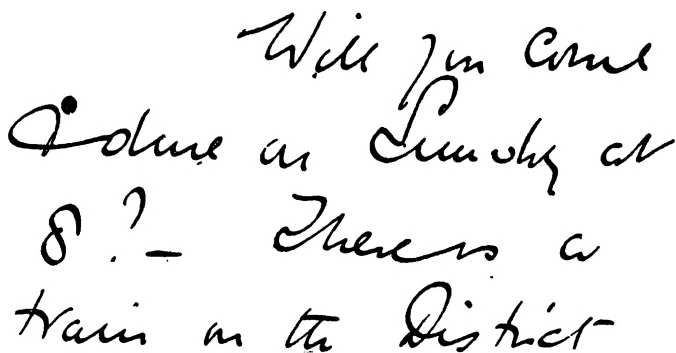 Will you come
& dine on Sunday at
8? – There is a
train on the District